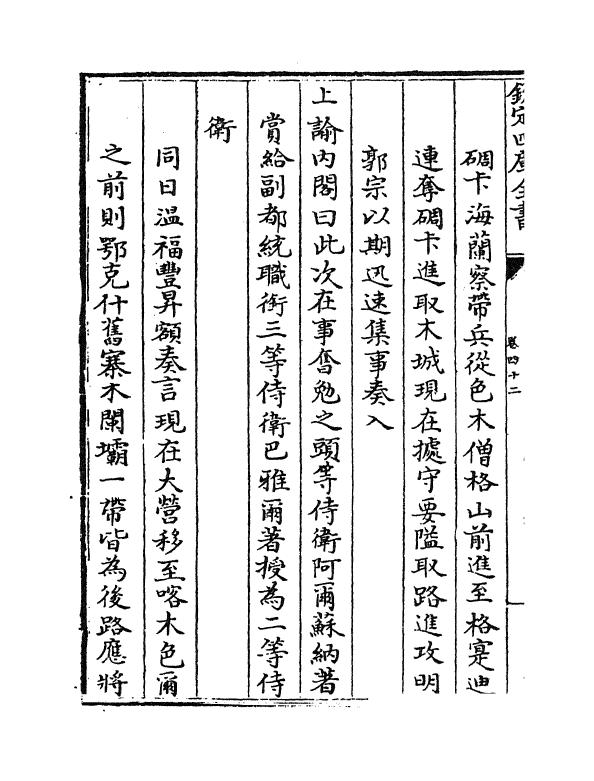 欽定四庫全書
卷四十二
碉卡海蘭察帶兵從色木僧格山前進至格寔迪
連奪碉卡進取木城現在據守要隘取路進攻明
郭宗以期迅速集事奏入
上諭內閣曰此次在事奮勉之頭等侍衛阿爾蘇納著
賞給副都統職銜三等侍衛巴雅爾著授為二等侍
衛
同日温福豐昇額奏言現在大營移至喀木色爾
之前則鄂克什舊寨木闌壩一帶皆為後路應將